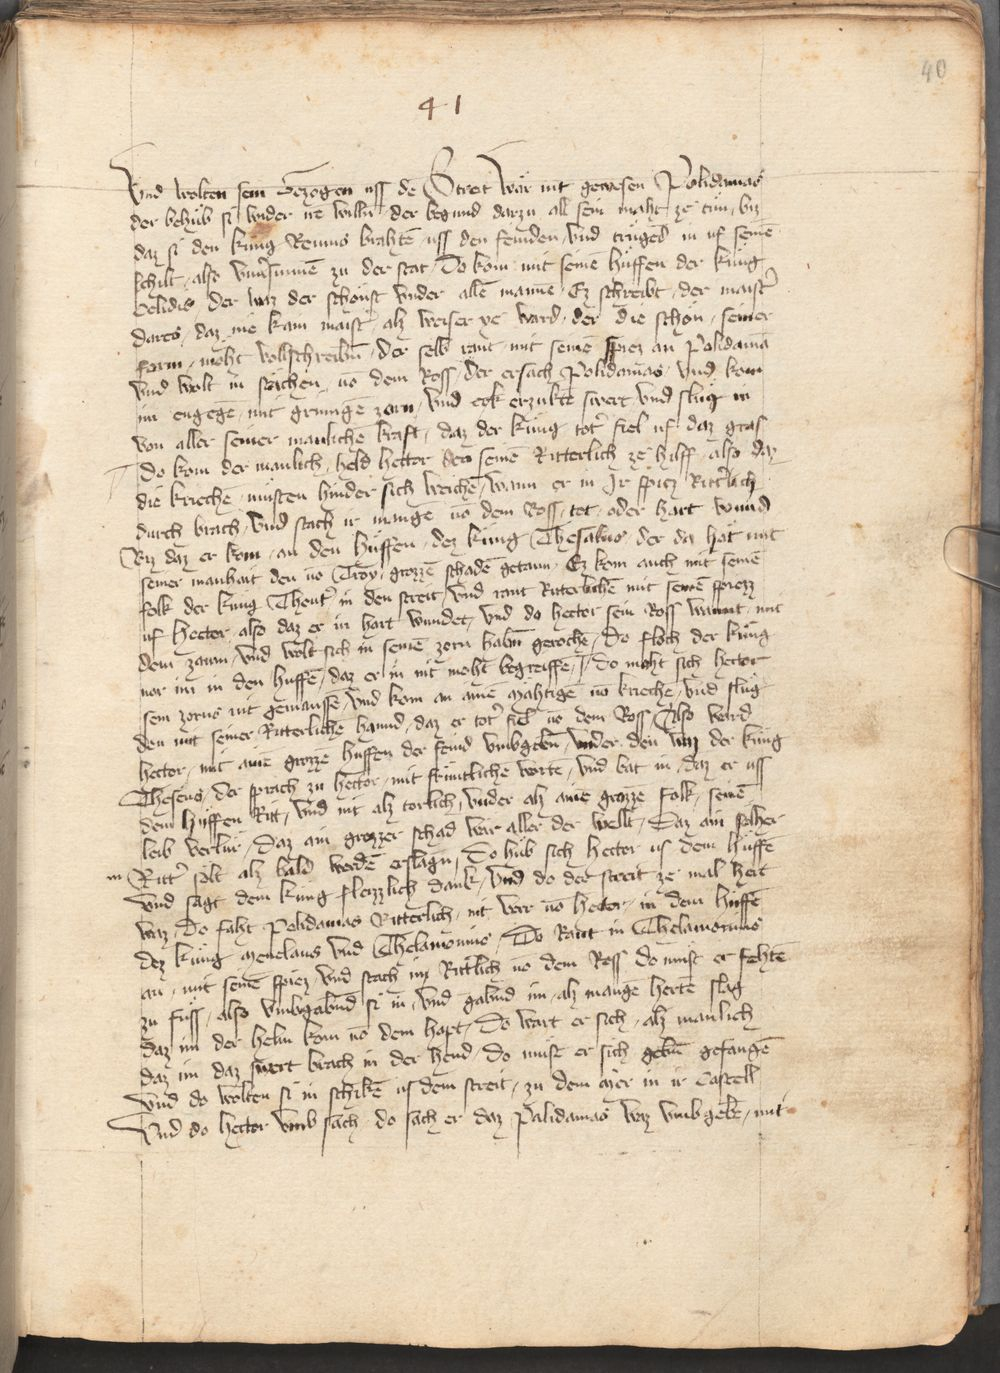 40
41
Vnd wolten sein gezogen uss de Strot wär nit gewesen Polidamas
der behüb si wider ire willn der begund darzu all sein maht ze tün biz
daz si den küng Remus brahtē uss den feinden vnd trügēd in uf seinē
schilt also zu der stat Do kom mit seinē hüffen der küng
Celidis der waz der schönst vnder allē mannē Ez schreibt der maist'
dares daz nie kam maist' alz weiser ye ward der die schön seiner
form möht vollschreibn der selb rant mit seinē spiez an Polidamā
vnd wolt in stächen vō dem Ross der ersach Polidamas vnd kom
im engegē mit grimigē zorn vnd erzukte swert vnd slüg in
von aller seiner manlichē kraft daz der küng tot' fiel uf daz gras
Do kom der manlich held hector den seinē Ritterlich ze hilff also daz
die kriechē müsten hinder sich weichē wann er in Jr spicz Ritt'lich
durch brach vnd stach ir mangē vō dem Ross tot oder hart wund
Biz daz er kom an den hüffen dez küng Thesalus der da hät mit
seiner manhait den vō Troy grozzē schadē getann Ez kom auch mit seinē
folk der küng Theut' in den streit vnd rant Ritterlichē mit seinē spiezz
uf hector also daz er in hart wundet vnd do hector sein Ross want mit
dem zaum vnd wolt sich in seinē zorn habn gerochē Do floch der küng
vor im in den hüffē daz er in nit moht begreiffē Do moht sich hector
sein zorns nit gemaussē vnd kom an ainē mähtigē vō krieche vnd slüg
den mit seiner Ritterlichē hannd daz er tot' fiel vō dem Ross Also ward
hector mit ainē grozzē hüffen der feind vmbgebn vnder den waz der küng
Theseus der sprach zu hector mit früntlichē wortē vnd bat in daz er uss
dem hüffen Ritt vnd nit alz torlich vnder alz aine grozze folk seinē
leib verlür daz ain grozzer schad wär aller der welt Daz ain sölher
Ritt' solt alz bald werdē erslagn Do hüb sich hector us dem hüffē
vnd sagt dem küng fleizzlich dank vnd do der streit ze mal hert
waz Do faht Polidamas Ritterlich nit verr vō hector in dem hüffē
dez küng menelaus vnd Thelamonius Do Rant in Thelamonius
an mit seinē spiez vnd stach in Rittlich vō dem Ross do müst er fehtē
zu füss also vmbgabnd si in vnd gabnd im alz mange hertē slag
daz im der helm kom vō dem hopt Do wart er sich alz manlich
daz im daz swert brach in der hend do müst er sich gebn gefangē
vnd do wolten si in schikē us dem streit zu dem mer in ir Castell
Vnd do hector vmb sach do sach er daz Palidamas waz vmbgebē mit